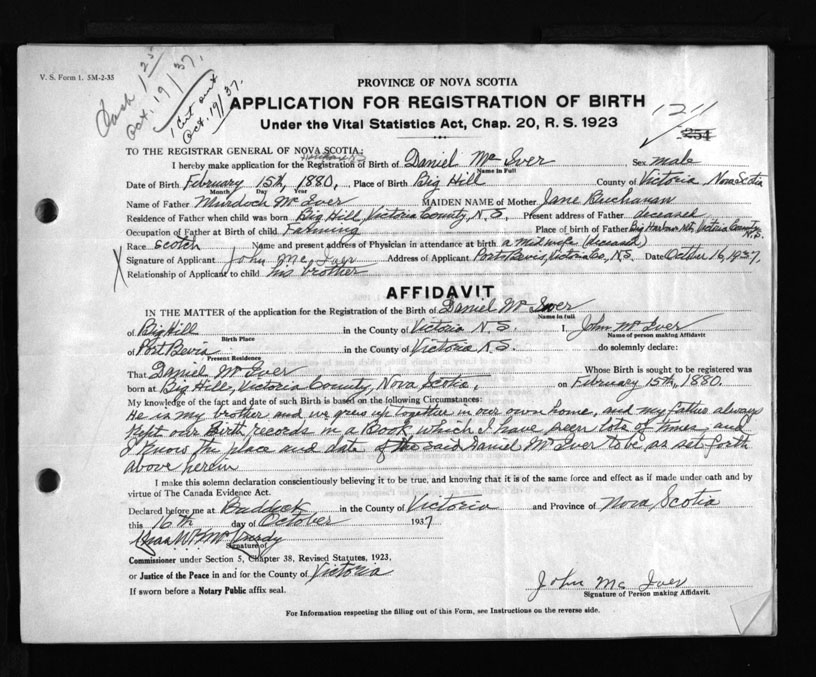 V. S. Form 1. 5M-2-35
Cash 1 25
Oct. 19/37.
1 Cert sent
Oct. 19/37.
PROVINCE OF NOVA SCOTIA
APPLICATION FOR REGISTRATION OF BIRTH
Under the Vital Statistics Act, Chap. 20, R. S. 1923
1211
254
TO THE REGISTRAR GENERAL OF NOVA SCOTIA:
I hereby make application for the Registration of Birth of Daniel Mc Iver Sex male
Name in Full
Date of Birth February 15th, 1880, Place of Birth Big Hill County of Victoria Nova Scotia
Month Day Year
Name of Father Murdoch Mc Iver MAIDEN NAME of Mother Jane Buchanan
Residence of Father when child was born Big Hill, Victoria County, N. S. Present address of Father deceased
Occupation of Father at Birth of child Farming Place of birth of Father Big Harbour Mt, Victoria County N.S.
Race scotch Name and present address of Physician in attendance at birth a Midwife (deceased)
X Signature of Applicant John Mc Iver Address of Applicant Port Bevis, Victoria Co, N.S. Date October 16, 1937.
Relationship of Applicant to child his brother
AFFIDAVIT
IN THE MATTER of the application for the Registration of the Birth of Daniel Mc Iver
Name in full
of Big Hill in the County of Victoria N. S. I, John Mc Iver
Birth Place Name of person making Affidavit
of Port Bevis in the County of Victoria N.S. do solemnly declare:
Present Residence
That Daniel Mc Iver Whose Birth is sought to be registered was
born at Big Hill, Victoria County, Nova Scotia, on February 15th, 1880.
My knowledge of the fact and date of such Birth is based on the following Circumstances:
He is my brother and we grew up together in our own home, and my father always
kept our Birth records in a Book which I have seen lots of times, and
I know the place and date of the said Daniel Mc Iver to be as set forth
above herein
I make this solemn declaration conscientiously believing it to be true, and knowing that it is of the same force and effect as if made under oath and by
virtue of The Canada Evidence Act.
Declared before me at Baddeck in the County of Victoria and Province of Nova Scotia
this 16th day of October 1937
Mc Curdy
Signature of
Commissioner under Section 5, Chapter 38, Revised Statutes, 1923,
or Justice of the Peace in and for the County of Victoria
If sworn before a Notary Public affix seal.
John Mc Iver
Signature of Person making Affidavit.
For Information respecting the filling out of this Form, see Instructions on the reverse side.